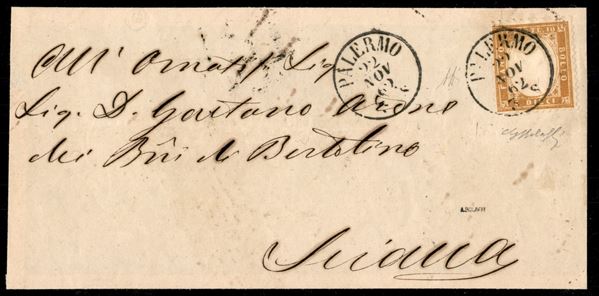 PALERMO
22
NOV
62
PALERMO
22
NOV
62
BOLLO
All' Ornat. Sig.
Sig. D. Gaetano Arone
dei Bñi di Bertolino
Siciana